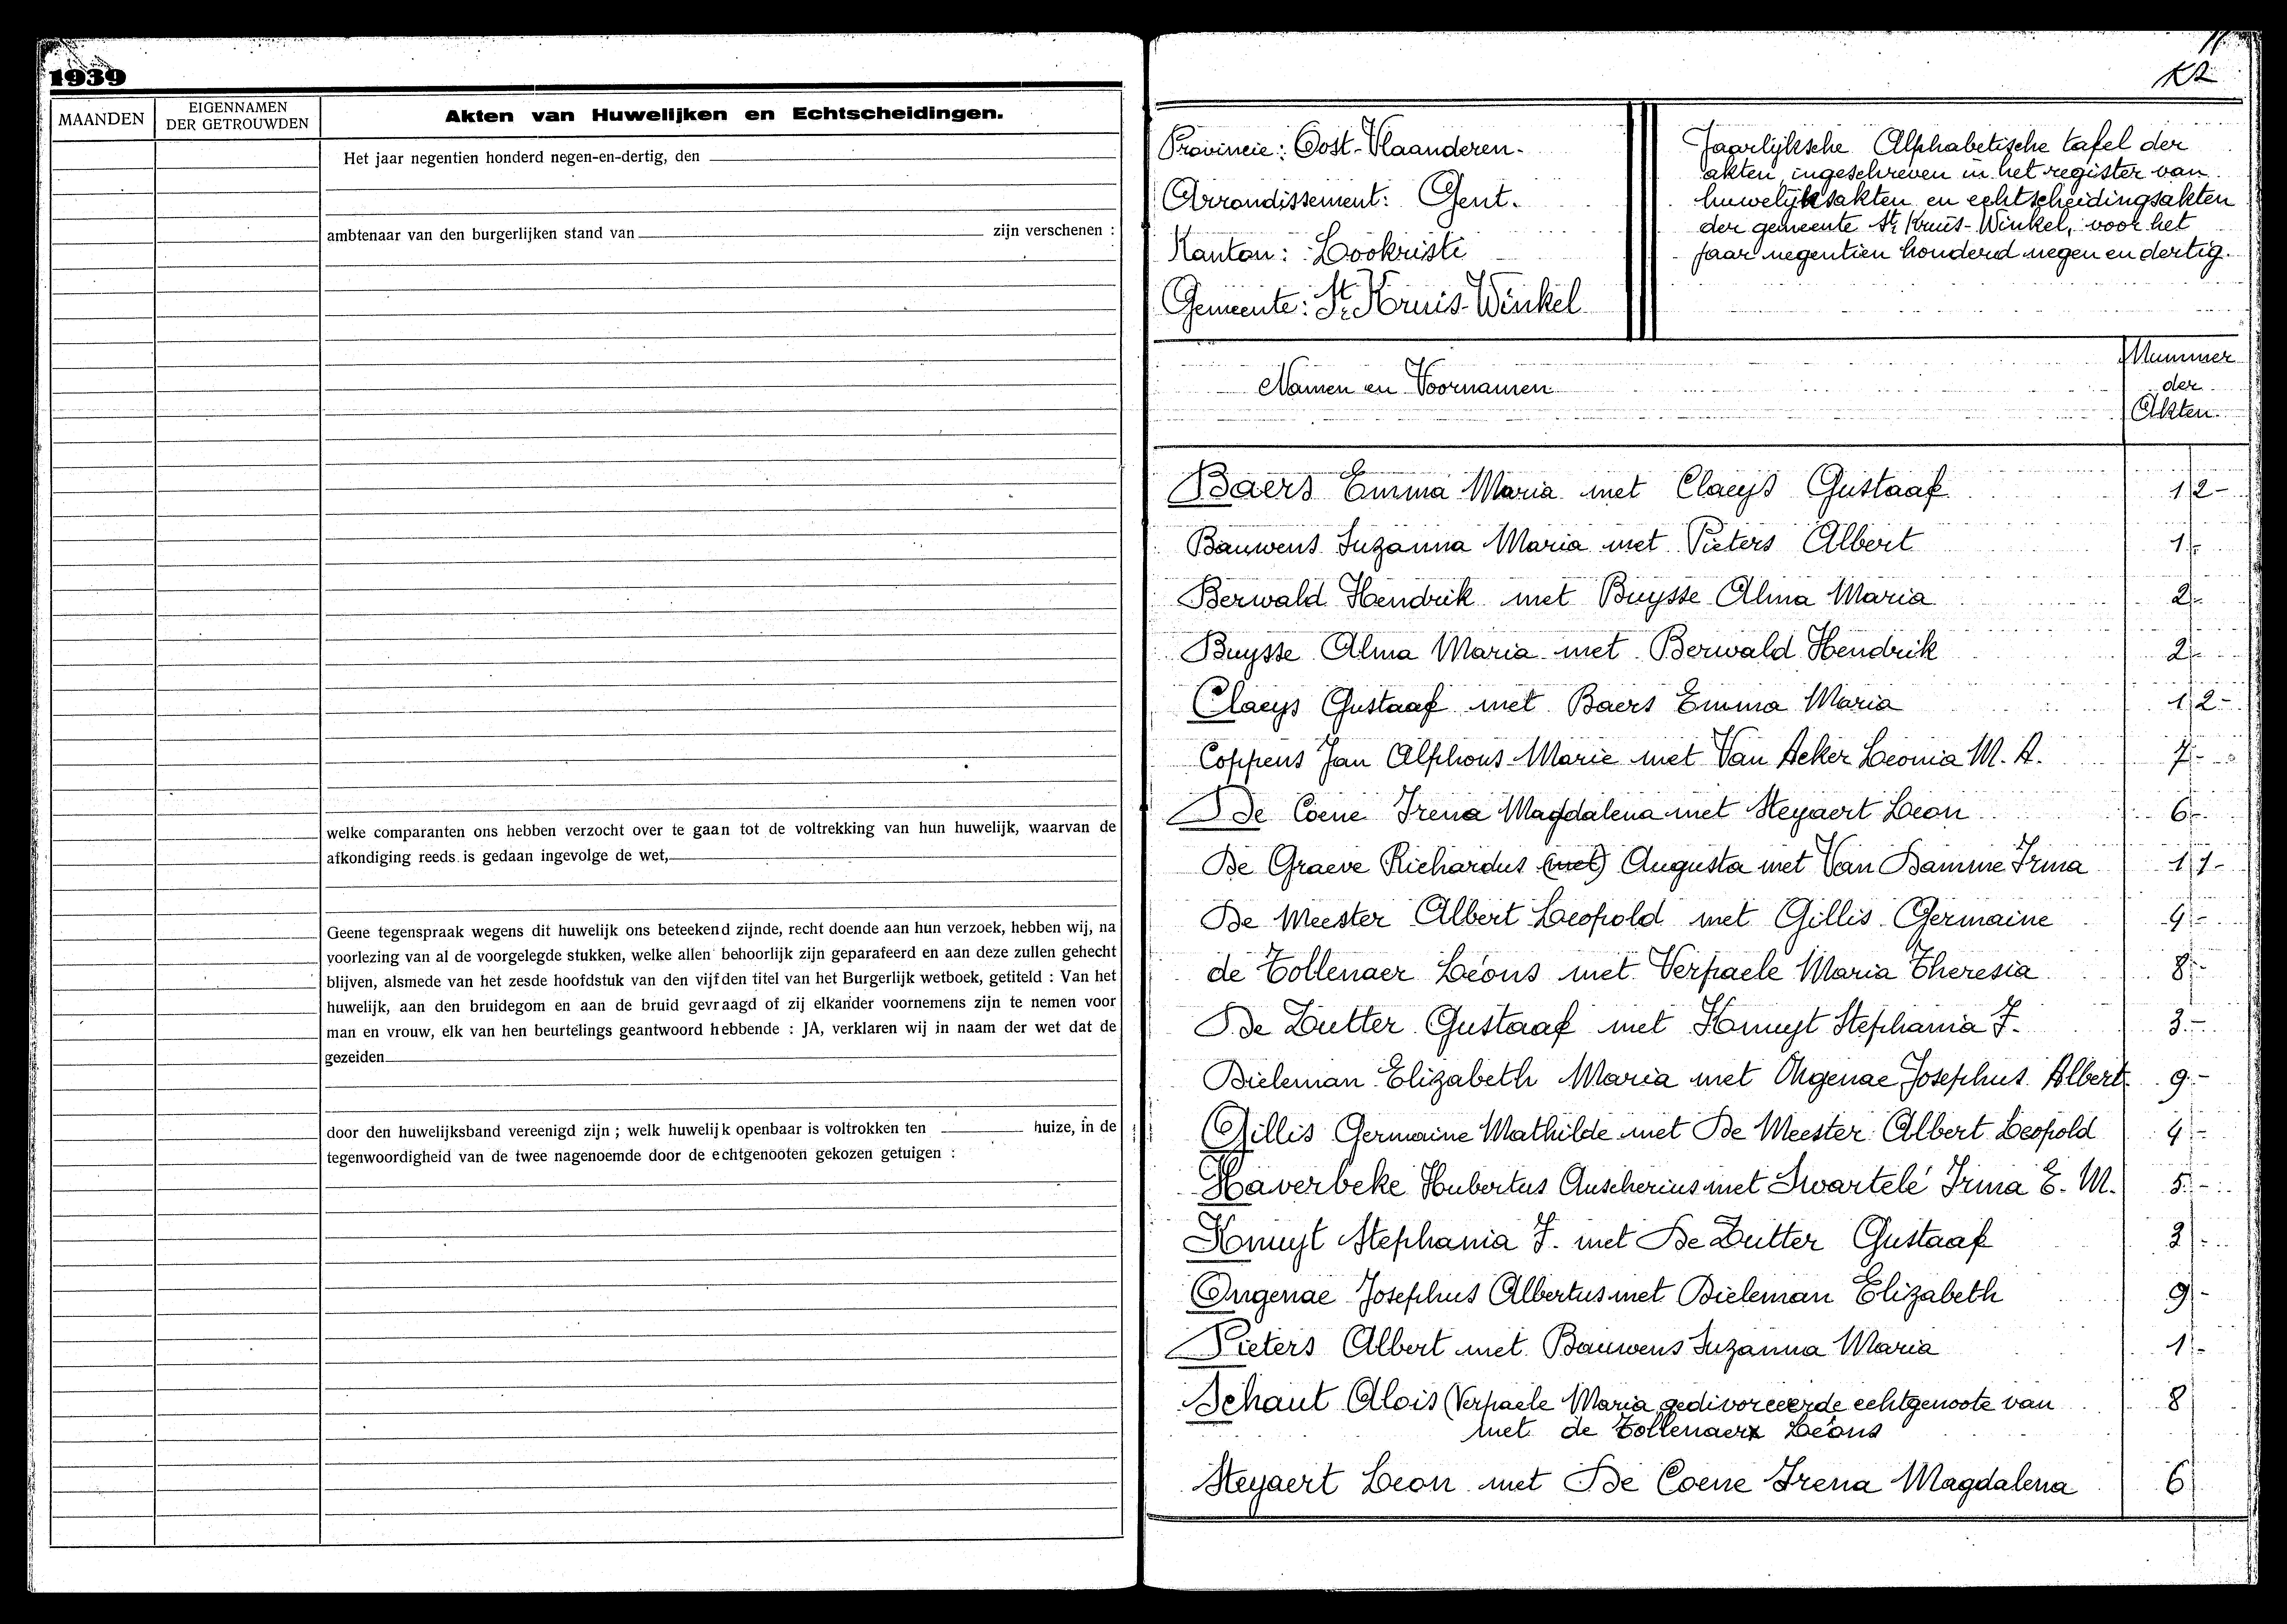 1939
MAANDEN
EIGENNAMEN
DER GETROUWDEN
Akten van Huwelijken en Echtscheidingen.
Het jaar negentien honderd negen-en-dertig, den
ambtenaar van den burgerlijken stand van zijn verschenen :
welke comparanten ons hebben verzocht over te gaan tot de voltrekking van hun huwelijk, waarvan de
afkondiging reeds is gedaan ingevolge de wet,
Geene tegenspraak wegens dit huwelijk ons beteekend zijnde, recht doende aan hun verzoek, hebben wij, na
voorlezing van al de voorgelegde stukken, welke allen behoorlijk zijn geparafeerd en aan deze zullen gehecht
blijven, alsmede van het zesde hoofdstuk van den vijfden titel van het Burgerlijk wetboek, getiteld : Van het
huwelijk, aan den bruidegom en aan de bruid gevraagd of zij elkander voornemens zijn te nemen voor
man en vrouw, elk van hen beurtelings geantwoord hebbende : JA, verklaren wij in naam der wet dat de
gezeiden
door den huwelijksband vereenigd zijn ; welk huwelijk openbaar is voltrokken ten huize, in de
tegenwoordigheid van de twee nagenoemde door de echtgenooten gekozen getuigen :
Provincie: Oost-Vlaanderen.
Arrondissement: Gent.
Kanton: Lookristi
Gemeente: St. Kruis-Winkel
Jaarlijksche Alphabetische tafel der
akten ingeschreven in het register van
huwelijksakten en echtscheidingsakten
der gemeente St. Kruis-Winkel, voor het
jaar negentien honderd negen en dertig.
Namen en Voornamen
Nummer
der
Akten
Baers Emma Maria met Claeys Gustaaf 12-
Bauwens Suzanna Maria met Pieters Albert 1-
Berwald Hendrik met Buysse Alma Maria 2-
Buysse Alma Maria met Berwald Hendrik 2-
Claeys Gustaaf met Baers Emma Maria 12-
Coppens Jan Alphons Marie met Van Acker Leonia M. A. 7-
De Coene Irena Magdalena met Steyaert Leon 6-
De Graeve Richardus (met) Augusta met Van Damme Irma 11-
De Meester Albert Leopold met Gillis Germaine 4-
de Tollenaer Léons met Verpaele Maria Theresia 8-
De Zutter Gustaaf met Knuyt Stephania J. 3-
Dieleman Elizabeth Maria met Ongenae Josephus Albert 9-
Gillis Germaine Mathilde met De Meester Albert Leopold 4-
Haverbeke Hubertus Anscherius met Swartelé Irma E. M. 5-
Knuyt Stephania J. met De Zutter Gustaaf 3-
Ongenae Josephus Albertus met Dieleman Elizabeth 9-
Pieters Albert met Bauwens Suzanna Maria 1-
Schaut Alois (Verpaele Maria gedivorceerde echtgenoote van 8
met de Tollenaer Léons
Steyaert Leon met De Coene Irena Magdalena 6